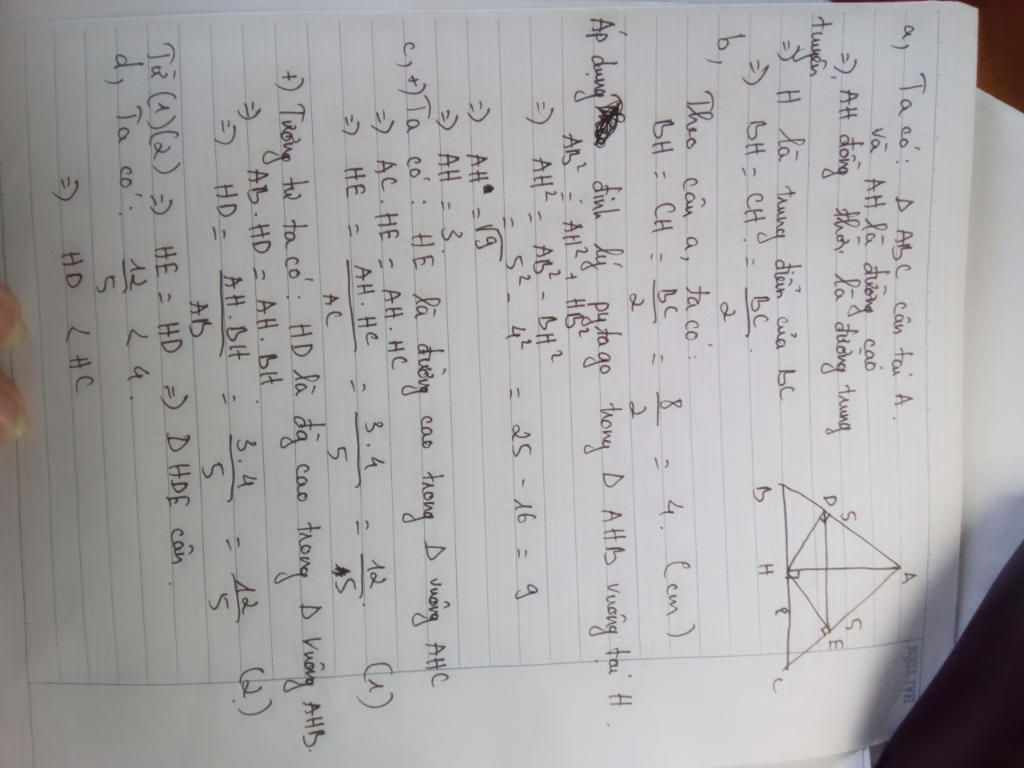 a, Ta có: Δ ABC cân tại A.
và AH là đường cao
=) AH đồng thời là đường trung
tuyến
=) H là trung điểm của BC
=) BH = CH = BC/2.
b,
Theo câu a, ta có:
BH = CH = BC/2 = 8/2 = 4. (cm)
Áp dụng định lý pytago trong Δ AHB vuông tại H.
AB² = AH² + HB²
=) AH² = AB² - BH²
= 5² - 4² = 25 - 16 = 9
=) AH = √9
=) AH = 3.
c, +) Ta có: HE là đường cao trong Δ vuông AHC
=) AC . HE = AH . HC
=) HE = AH . HC/AC = 3.4/5 = 12/5. (1)
+) Tương tự ta có: HD là đg cao trong Δ vuông AHB.
=) AB . HD = AH . BH.
=) HD = AH . BH/AB = 3.4/5 = 12/5 (2)
Từ (1)(2) =) HE = HD =) Δ HDE cân.
d, Ta có: 12/5 < 4.
=) HD < HC
A
D
5
5
E
B
H
C
HẢI TIẾN